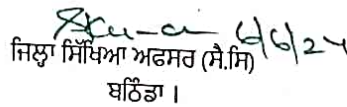 6/6/24
ਜਿਲ੍ਹਾ ਸਿੱਖਿਆ ਅਫਸਰ (ਸੈ.ਸਿ)
ਬਠਿੰਡਾ ।